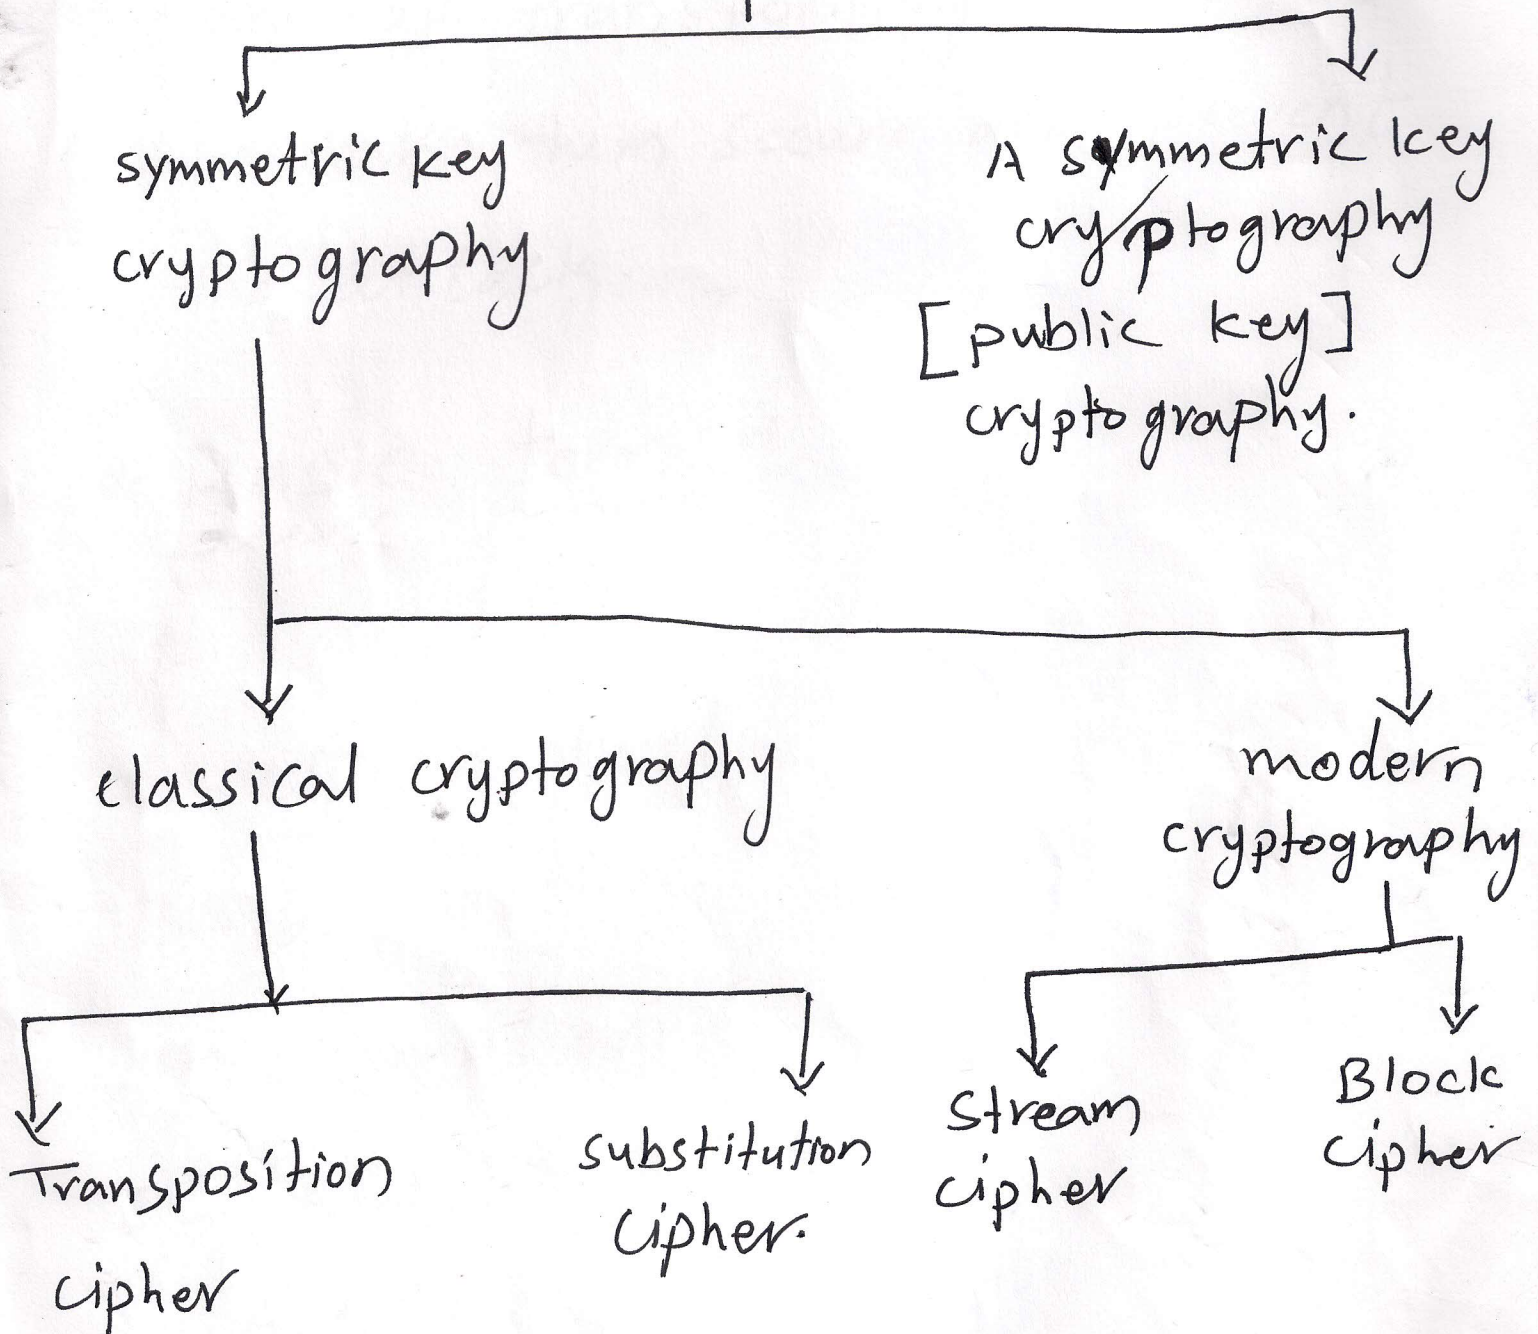 symmetric key
cryptography
A symmetric key
cryptography
[public key]
cryptography.
classical cryptography
modern
cryptography
Transposition
cipher
substitution
cipher.
Stream
cipher
Block
cipher